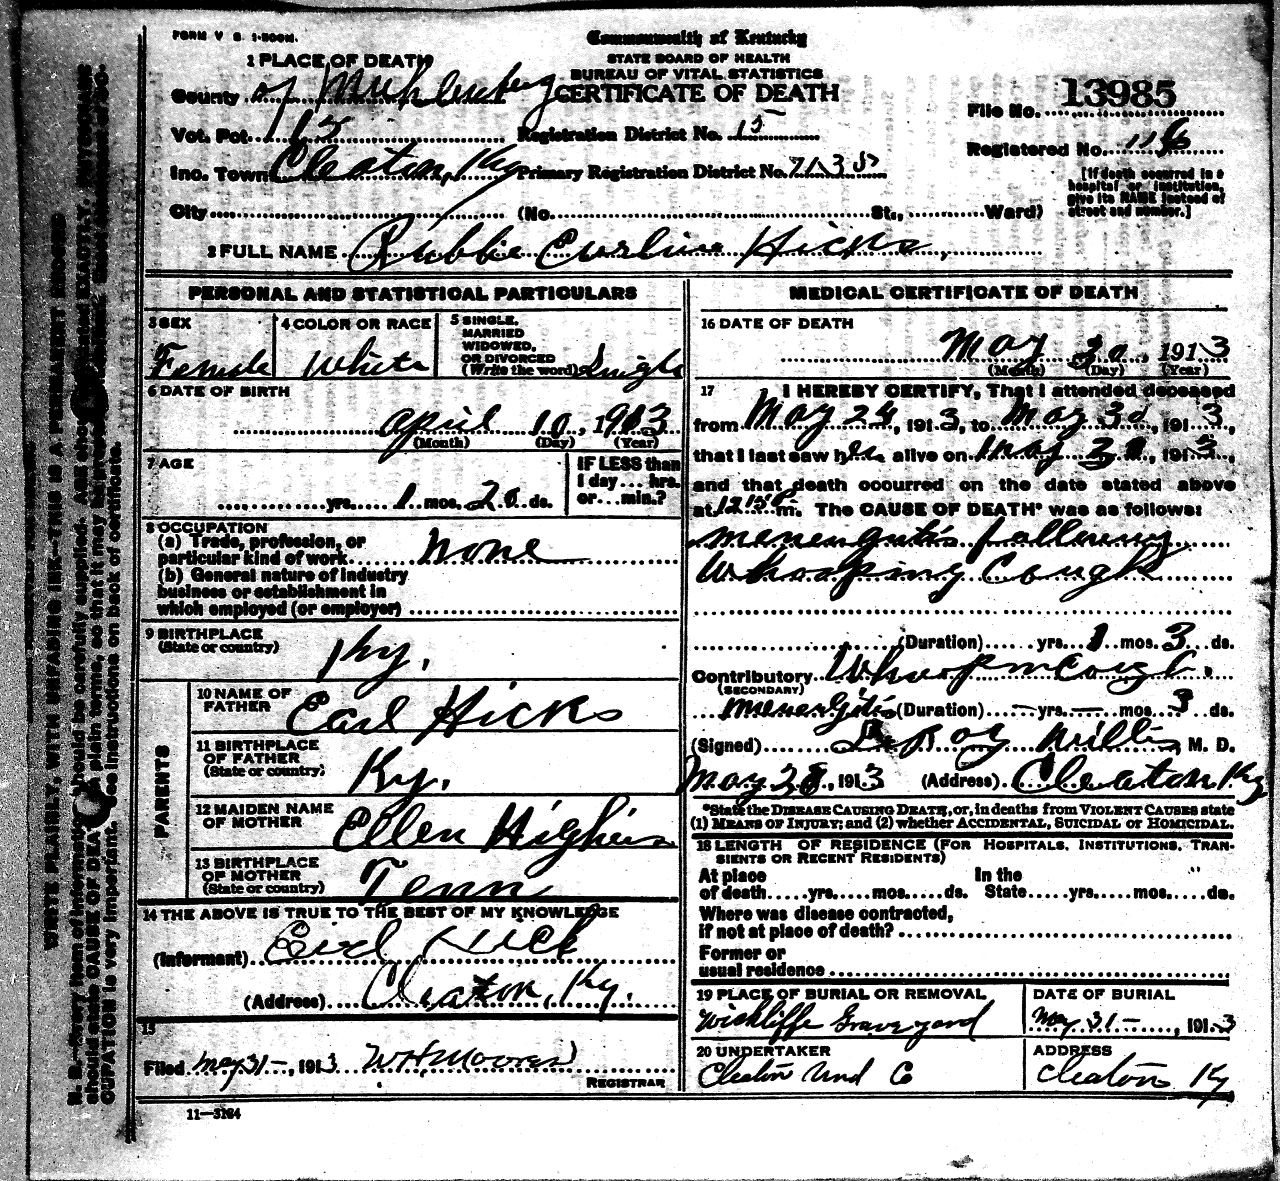 FORM V S. 1-500M.
Commonwealth of Kentucky
STATE BOARD OF HEALTH
BUREAU OF VITAL STATISTICS
CERTIFICATE OF DEATH
1 PLACE OF DEATH
County of Muhlenberg
Vot. Pct. 15 Registration District No. 15
Inc. Town Cleaton, Ky Primary Registration District No. 7135
City (No. St., Ward)
File No. 13985
Registered No. 116
[If death occurred in a hospital or institution, give its NAME instead of street and number.]
2 FULL NAME Rubbie Hicks
PERSONAL AND STATISTICAL PARTICULARS
3 SEX
Female
4 COLOR OR RACE
White
5 SINGLE, MARRIED WIDOWED, OR DIVORCED (Write the word) Single
6 DATE OF BIRTH
April 10, 1913
(Month) (Day) (Year)
7 AGE
yrs. 1 mos. 20 ds.
IF LESS than 1 day... hrs. or... min.?
8 OCCUPATION
(a) Trade, profession, or
particular kind of work None
(b) General nature of industry
business or establishment in
which employed (or employer)
9 BIRTHPLACE
(State or country) Ky.
PARENTS
10 NAME OF FATHER Earl Hicks
11 BIRTHPLACE OF FATHER (State or country) Ky.
12 MAIDEN NAME OF MOTHER Ellen
13 BIRTHPLACE OF MOTHER (State or country) Tenn
14 THE ABOVE IS TRUE TO THE BEST OF MY KNOWLEDGE
(Informant)
(Address) Cleaton, Ky.
15
Filed May 31-, 1913 W H Moore
REGISTRAR
11-3184
MEDICAL CERTIFICATE OF DEATH
16 DATE OF DEATH
May 30, 1913
(Month) (Day) (Year)
17 I HEREBY CERTIFY, That I attended deceased
from May 24, 1913, to May 30, 1913,
that I last saw her alive on May 1913,
and that death occurred on the date stated above
at m. The CAUSE OF DEATH* was as follows:
menengitis following
Whooping Cough
(Duration) yrs. 1 mos. 3 ds.
Contributory Cough.
(SECONDARY)
(Duration) - yrs. - mos. 3 ds.
(Signed) Roy Wills, M. D.
May 1913 (Address) Cleaton Ky
*State the DISEASE CAUSING DEATH, or, in deaths from VIOLENT CAUSES state
(1) MEANS OF INJURY; and (2) whether ACCIDENTAL, SUICIDAL or HOMICIDAL.
18 LENGTH OF RESIDENCE (FOR HOSPITALS, INSTITUTIONS, TRAN-
SIENTS OR RECENT RESIDENTS)
At place In the
of death yrs. mos. ds. State yrs. mos. ds.
Where was disease contracted,
if not at place of death?
Former or
usual residence
19 PLACE OF BURIAL OR REMOVAL
Wickliffe Graveyard
DATE OF BURIAL
May 31-, 1913
20 UNDERTAKER
Cleaton Und Co
ADDRESS
Cleaton Ky
WRITE PLAINLY, WITH UNFADING INK—THIS IS A PERMANENT RECORD
N. B.—Every item of information should be carefully supplied. AGE should be stated EXACTLY. PHYSICIANS
should state CAUSE OF DEATH in plain terms, so that it may be
CUPATION is very important. See instructions on back of certificate.